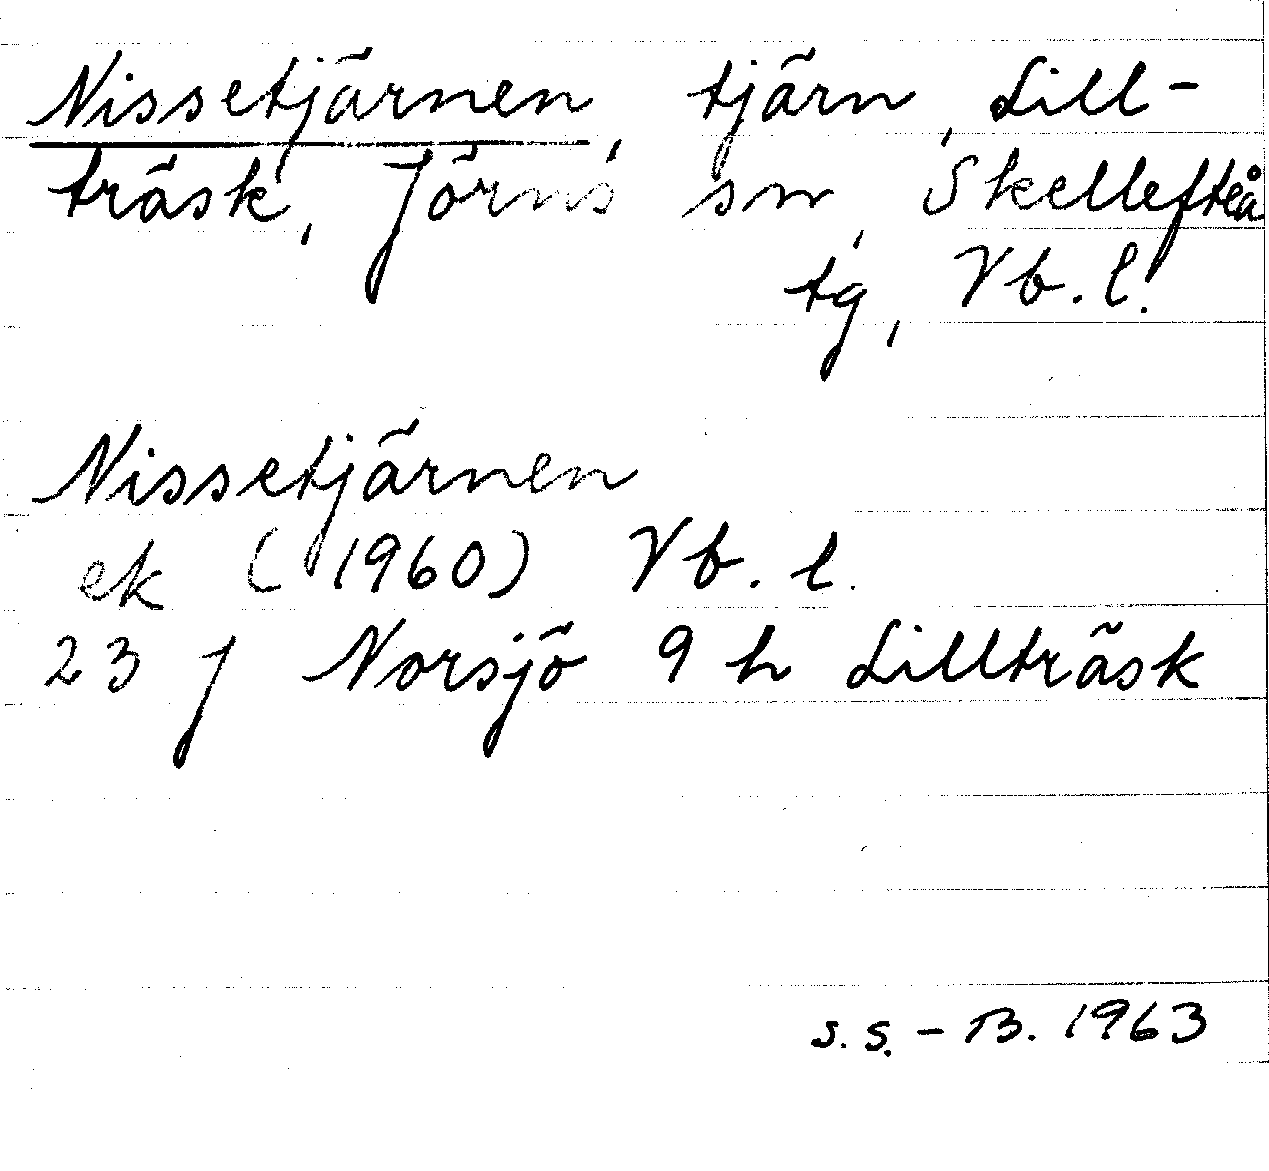 Nissetjärnen, tjärn, Lill-
träsk, Jörns sn, Skellefteå
tg, Vb. l.
Nissetjärnen
ek (1960) Vb. l.
23 J Norsjö 9 h Lillträsk
s. s. - B. 1963